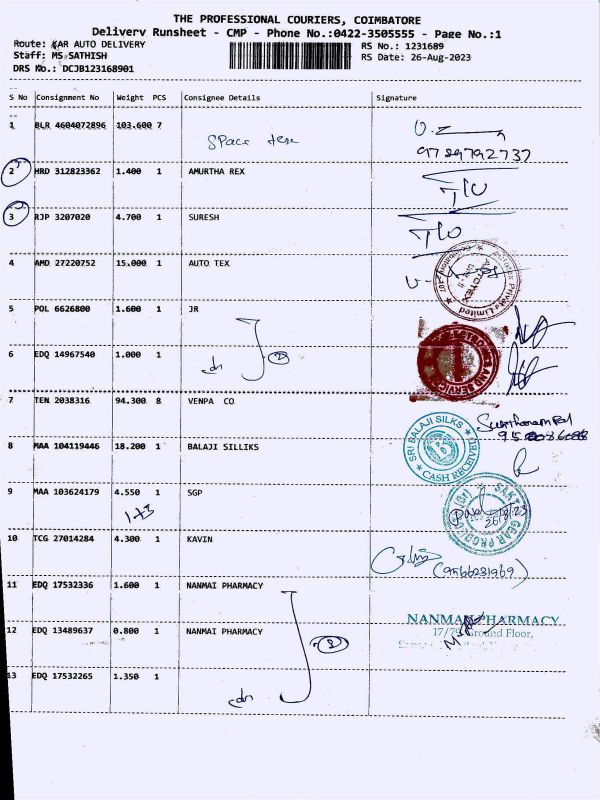 THE PROFESSIONAL COURIERS, COIMBATORE
Delivery Runsheet - CMP - Phone No.:0422-3505555 - Page No.:1
Route: KAR AUTO DELIVERY
Staff: MS SATHISH
DRS No.: DCJB123168901
RS No.: 1231689
RS Date: 26-Aug-2023
S No Consignment No Weight PCS Consignee Details Signature
1 BLR 4604072896 103.600 7 Space tex
9789792737
2 HRD 312823362 1.400 1 AMURTHA REX
3 RJP 3207020 4.700 1 SURESH
4 AMD 27220752 15.000 1 AUTO TEX
Private Limited
5 POL 6626800 1.600 1 JR
6 EDQ 14967540 1.000 1
2
7 TEN 2038316 94.300 8 VENPA CO
8 MAA 104119446 18.200 1 BALAJI SILLIKS
SRI BALAJI SILKS
CASH RECEIVED
9 MAA 103624179 4.550 1 SGP
1+3
SAKTHI GEAR PRODUCTS
26/8/23
10 TCG 27014284 4.300 1 KAVIN
(9566231969)
11 EDQ 17532336 1.600 1 NANMAI PHARMACY
NANMAI PHARMACY
17/79 Ground Floor,
12 EDQ 13489637 0.800 1 NANMAI PHARMACY
13 EDQ 17532265 1.350 1